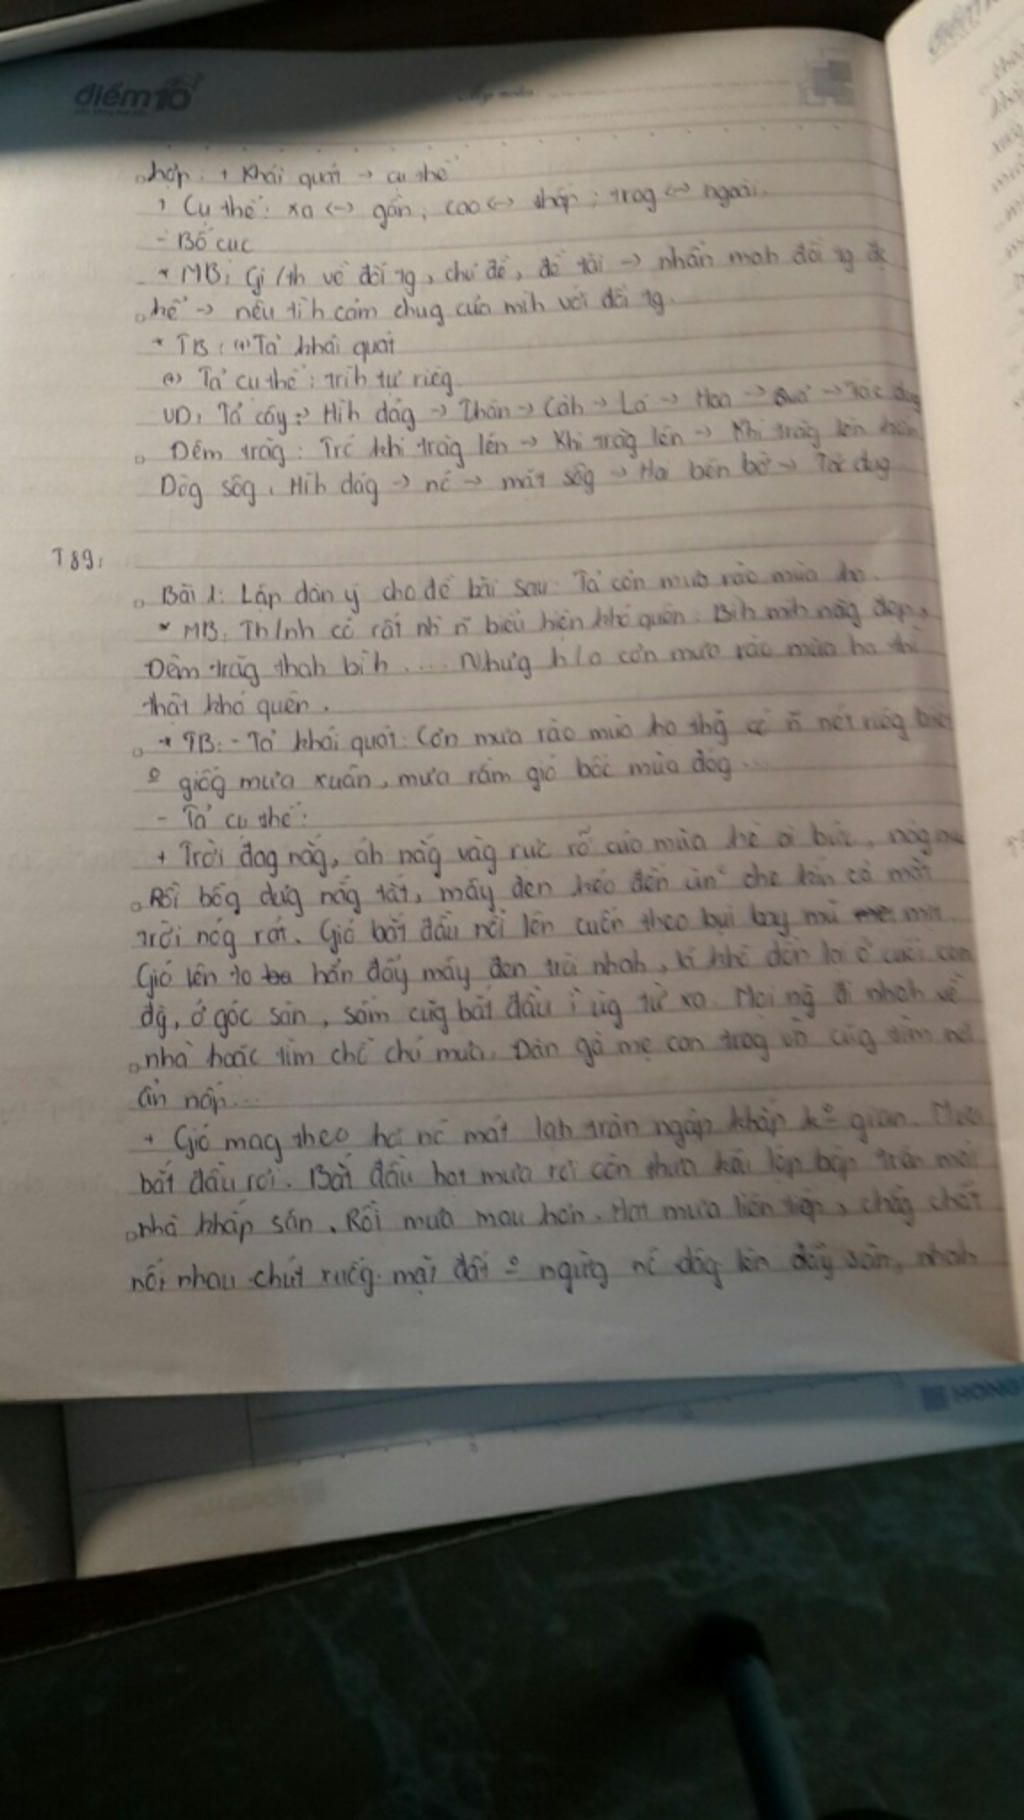 điểm10
hợp: + Khái quát → cụ thể
+ Cụ thể: xa ↔ gần, cao ↔ thấp; trog ↔ ngoài.
- Bố cục
* MB: Gi/th về đối tg, chủ đề, đề tài → nhấn mạh đối tg
→ nêu tìh cảm chug của mìh với đối tg.
* TB: (1) Tả khái quát
Tả cụ thể: trìh tự riêg
VD: Tả cây: Hìh dág → Thân → Càh → Lá → Hoa → Quả → Tác dụg
Đêm trăg: Trc khi trăg lên → Khi trăg lên → Khi trăg lên
Dòg sôg: Hìh dág → nc → mặt sôg → Hai bên bờ → Tác dụg
T89:
Bài 1: Lập dàn ý cho đề bài sau: Tả cơn mưa rào mùa hạ.
* MB: Th/nh có rất nh` biểu hiện khó quên: Bìh mih nắg đẹp,
Đêm trăg thah bìh .... Nhưg h/a cơn mưa rào mùa hạ thì
thật khó quên.
* TB: - Tả khái quát: Cơn mưa rào mùa hạ thg có n nét riêg biệt
giốg mưa xuân, mưa rầm gió bấc mùa đôg...
- Tả cụ thể:
+ Trời đag nắg, áh nắg vàg rực rỡ của mùa hè oi bức,
Rồi bỗg dưg nắg tắt, mây đen kéo đến che kín cả mặt
trời nóg rát. Gió bắt đầu nổi lên cuốn theo bụi bay mù mịt.
Gió lên to hẳn đẩy mây đen trôi nhah, dồn lại ở cuối con
đg, ở góc sân, sấm cũg bắt đầu ì ùg từ xa. Mọi ng đi nhah về
nhà hoặc tìm chỗ chú mưa. Đàn gà mẹ con trog cũg tìm nơi
ẩn nấp...
+ Gió mag theo hơi nc mát lạh tràn ngập khắp kº gian. Mưa
bắt đầu rơi. Bắt đầu hạt mưa rơi còn thưa lộp bộp trên mái
nhà khắp sân. Rồi mưa mau hơn. Hạt mưa liên tiếp, chằg chịt
nối nhau chút xuốg mặt đất º ngừg nc dâg lên đầy sân, nhah
HONG